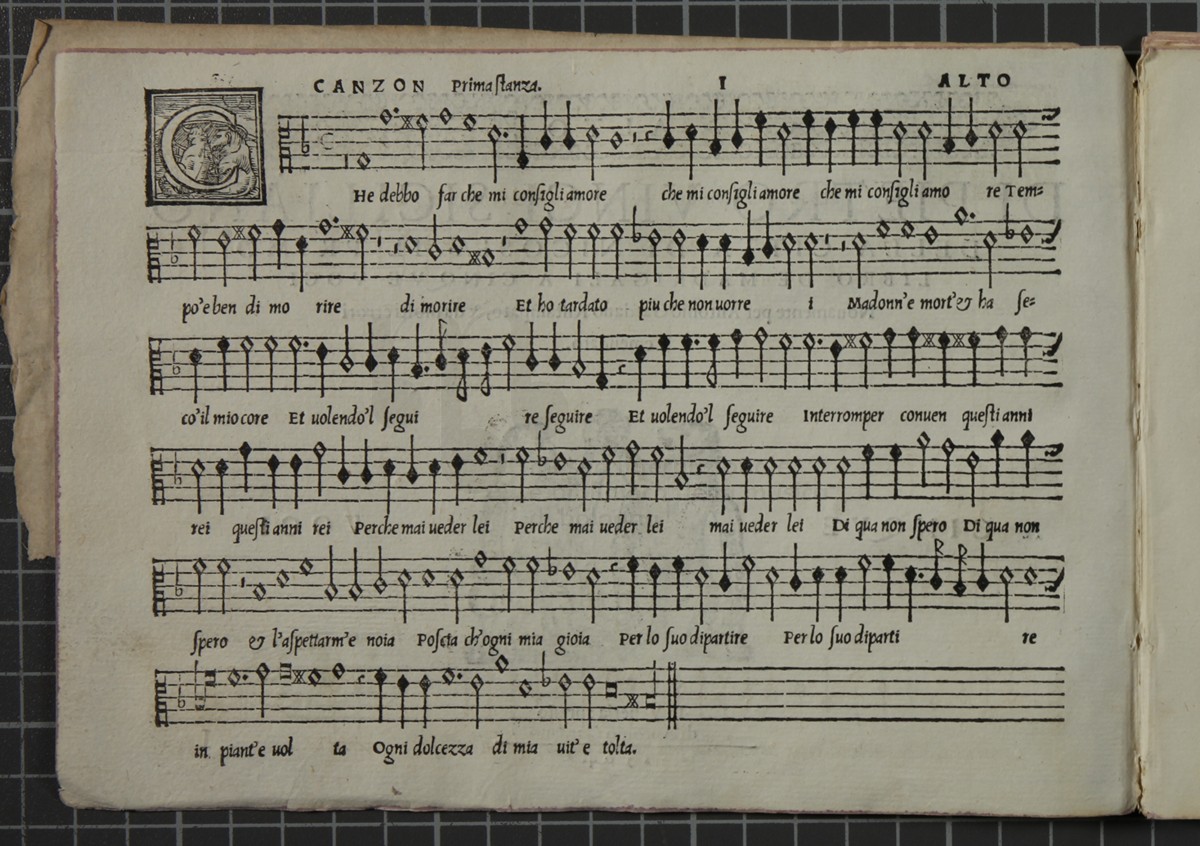 CANZON Prima stanza. I ALTO
CHe debbo far che mi consigli amore che mi consigli amore che mi consigli amo re Tem=
po'e ben di mo rire di morire Et ho tardato piu che non uorre i Madonn'e mort'& ha se=
co'il mio core Et uolendo'l segui re seguire Et uolendo'l seguire Interromper conuen questi anni
rei questi anni rei Perche mai ueder lei Perche mai ueder lei mai ueder lei Di qua non spero Di qua non
spero & l'aspettarm'e noia Poscia ch'ogni mia gioia Per lo suo dipartire Per lo suo diparti re
in piant'e uol ta Ogni dolcezza di mia uit'e tolta.